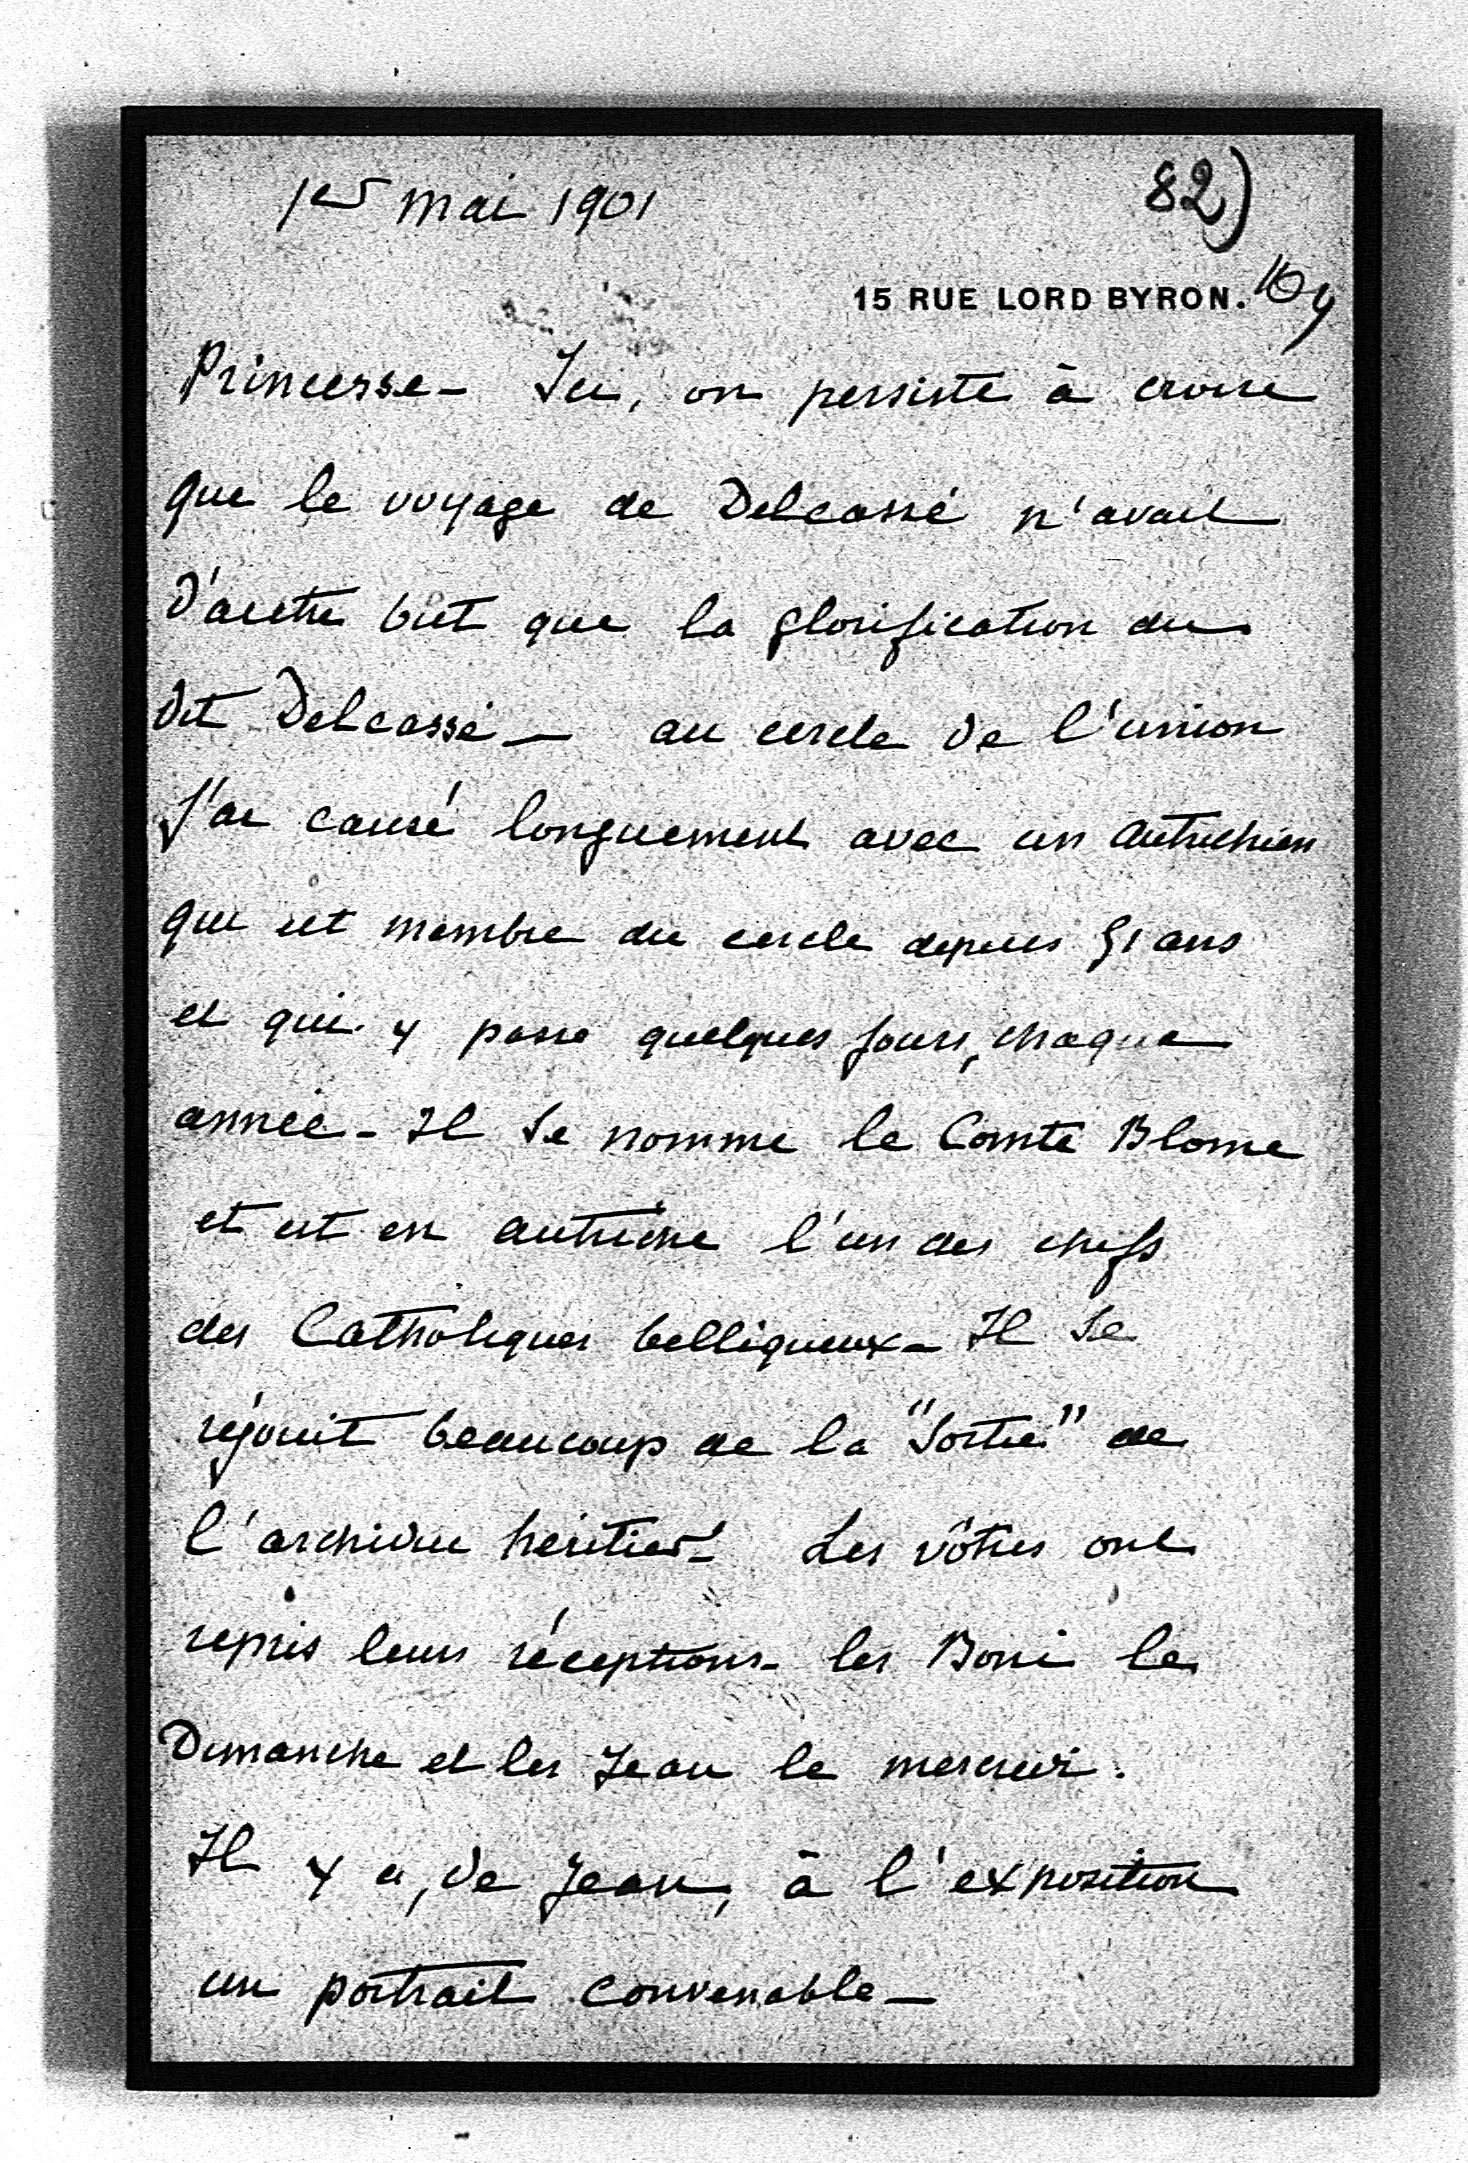 1er mai 1901
82)
15 RUE LORD BYRON.
Princesse - Ici, on persiste à croire
que le voyage de Delcassé n'avait
d'autre but que la glorification du
dit Delcassé - au cercle de l'union
j'ai causé longuement avec un autrichien
qui est membre du cercle depuis 51 ans
et qui y passe quelques jours, chaque
année - Il se nomme le Comte Blome
et est en autriche l'un des chefs
des Catholiques belliqueux - Il se
réjouit beaucoup de la "Sortie" de
l'archiduc héritier - Les vôtres ont
repris leurs réceptions - les Boni le
Dimanche et les Jean le mercredi.
Il y a, de Jean, à l'exposition
un portrait convenable -